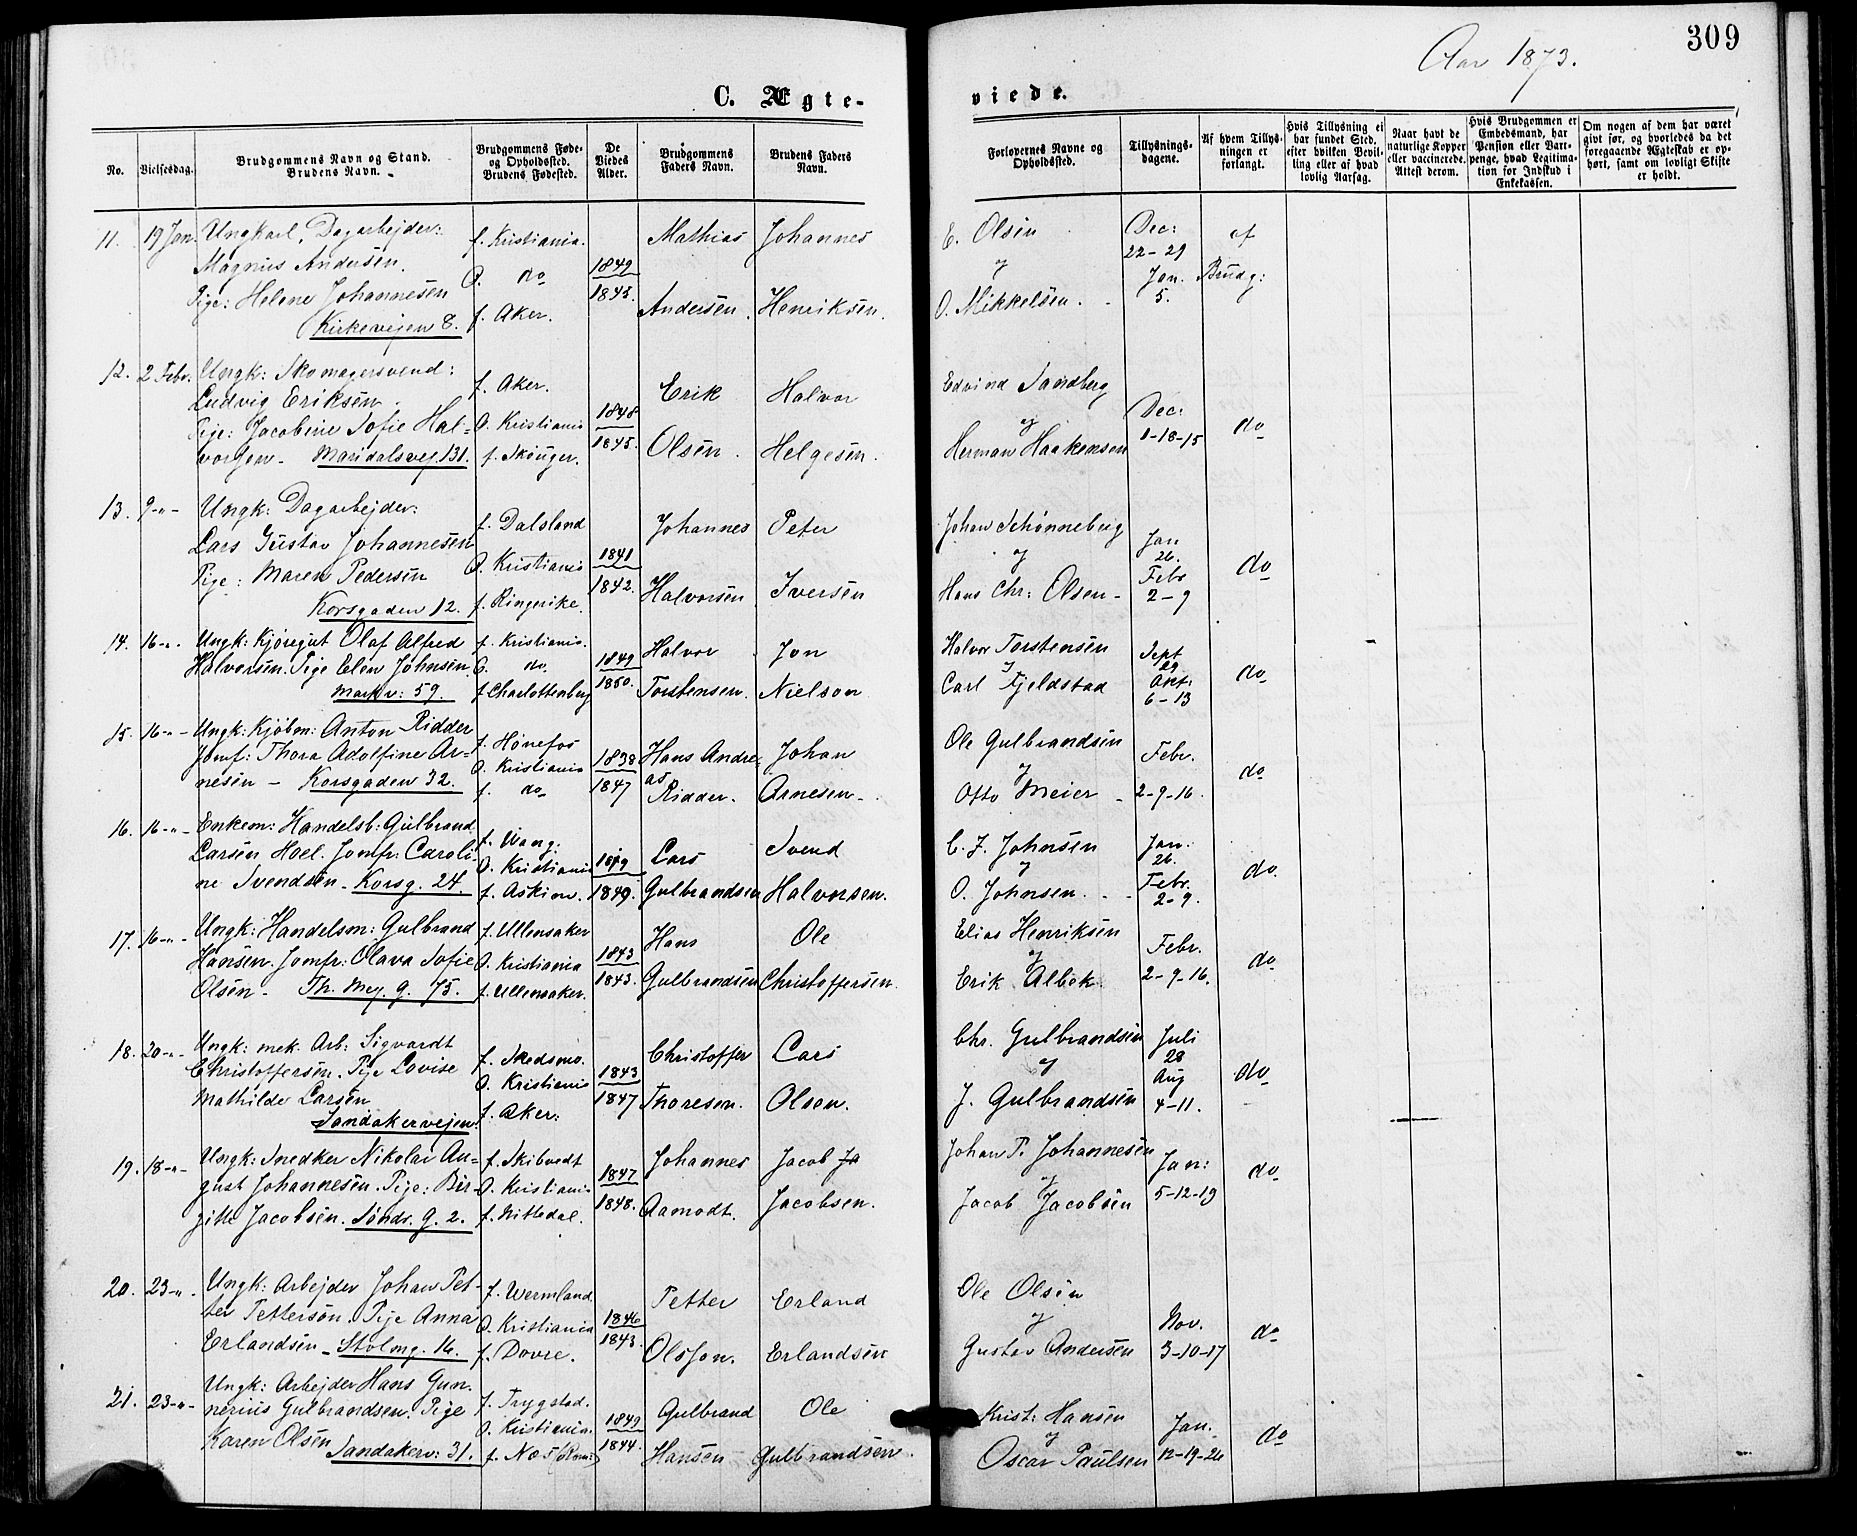 309
Aar 1873.
C. Ægte-
viede.
No.
Vielsesdag.
Brudgommens Navn og Stand.
Brudens Navn.
Brudgommens Føde-
og Opholdssted.
Brudens Fødested.
De
Viedes
Alder.
Brudgommens
Faders Navn.
Brudens Faders
Navn.
Forlovernes Navne og
Opholdssted.
Tillysnings-
dagene.
Af hvem Tillys-
ningen er
forlangt.
Hvis Tillysning ei
har fundet Sted,
efter hvilken Bevil-
ling eller af hvad
lovlig Aarsag.
Naar havt de
naturlige Kopper
eller vaccinerede.
Attest derom.
Hvis Brudgommen er
Embedsmand, har
Pension eller Vart-
penge, hvad Legitima-
tion for Indskud i
Enkekassen.
Om nogen af dem har været
givt før, og hvorledes da det
foregaaende Ægteskab er op-
hørt, samt om lovligt Skifte
er holdt.
11. 19 Jan. Ungkarl, Dagarbejder:
Magnus Andersen.
Pige: Helene Johannesen
Kirkevejen 8.
f. Kristiania.
O. do
f. Aker.
1849
1845.
Mathias
Andersen.
Johannes
Henriksen.
E. Olsen
og
O. Mikkelsen.
Dec:
22-29
Jan.
5.
af
Brudg:
12. 2 Febr. Ungk: Skomagersvend:
Ludvig Eriksen.
Pige: Jacobine Sofie Hal-
vorsen - Maridalsvej. 131.
f. Aker.
O. Kristiania
f. Skouger.
1848
1845.
Erik
Olsen.
Halvor
Helgesen.
Edvind Sandberg
og
Herman Haakensen
Dec:
1-18-15
do
13. 9-"- Ungk: Dagarbejder:
Lars Gustav Johannesen
Pige: Maren Pedersen
Korsgaden 12.
f. Dalsland
O. Kristiania
f. Ringerike.
1841
1842.
Johannes
Halvorsen
Peter
Iversen
Johan Schønneberg
og
Hans Chr: Olsen -
Jan
26.
Febr
2-9
do
14. 16-"- Ungk: Kjøregut Olaf Alfred
Halvorsen. Pige Elen Johnsen
Markv: 59.
f. Kristiania.
O. do.
f. Charlottenberg
1849
1850.
Halvor
Torstensen.
Jon
Nielson
Halvor Torstensen
og
Carl Fjeldstad
Sept
29
Okt:
6-13
do
15. 16-"- Ungk: Kjøbm: Anton Ridder
Jomf: Thora Adolfine Ar-
nesen - Korsgaden 32.
f. Hønefos
O. Kristiania
f. do
1838
1847
Hans Andre-
as
Ridder.
Johan
Arnesen -
Ole Gulbrandsen
og
Otto Meier -
Febr.
2-9-16.
do
16. 16-"- Enkem: Handelsb: Gulbrand
Larsen Hoel. Jomfr: Caroli-
ne Svendsen - Korsg. 24.
f. Vang:
O. Kristiania
f. Askim.
1849.
Lars
Gulbrandsen
Svend
Halvorsen.
C. J. Johnsen
og
O. Johnsen.
Jan.
26.
Febr.
2-9.
do
17. 16-"- Ungk: Handelsm: Gulbrand
Hansen. Jomfr: Olava Sofie
Olsen - Th. Mey. g. 75.
f. Ullensaker
O. Kristiania
f. Ullensaker.
1843
1843.
Hans
Gulbrandsen
Ole
Christoffersen.
Elias Henriksen
og
Erik Albek
Febr.
2-9-16.
do
18. 20-"- Ungk: mek. Arb: Sigvardt
Christoffersen. Pige Lovise
Mathilde Larsen
Sandakervejen.
f. Skedsmo.
O. Kristiania
f. Aker:
1843
1847
Christoffer
Thoresen.
Lars
Olsen.
Chr. Gulbrandsen
og
J. Gulbrandsen
Juli
28
Aug
4-11.
do
19. 18-"- Ungk: Snedker Nikolai Au-
gust Johannesen. Pige: Bir-
gitte Jacobsen. Søndr. g. 2.
f. Skibvedt
O. Kristiania
f. Nittedal.
1847
1848.
Johannes
Aamodt.
Jacob Ja
Jacobsen.
Johan P. Johannesen
og
Jacob Jacobsen
Jan:
5-12-19
do
20. 23-"- Ungk: Arbejder Johan Pet-
ter Pettersen. Pige Anna
Erlandsen - Stolmg. 16.
f. Wermland
O. Kristiania
f. Dovre.
1846
1843.
Petter
Olsson.
Erland
Erlandsen
Ole Olsen
og
Gustav Andersen
Nov.
3-10-17
do
21. 23-"- Ungk: Arbejder Hans Gun-
nerius Gulbrandsen. Pige
Karen Olsen
Sandakerv: 31.
f. Trygstad.
O. Kristiania.
f. Næs
1849
1844.
Gulbrand
Hansen
Ole
Gulbrandsen.
Krist: Hansen
og
Oscar Paulsen
Jan.
12-19-26
do